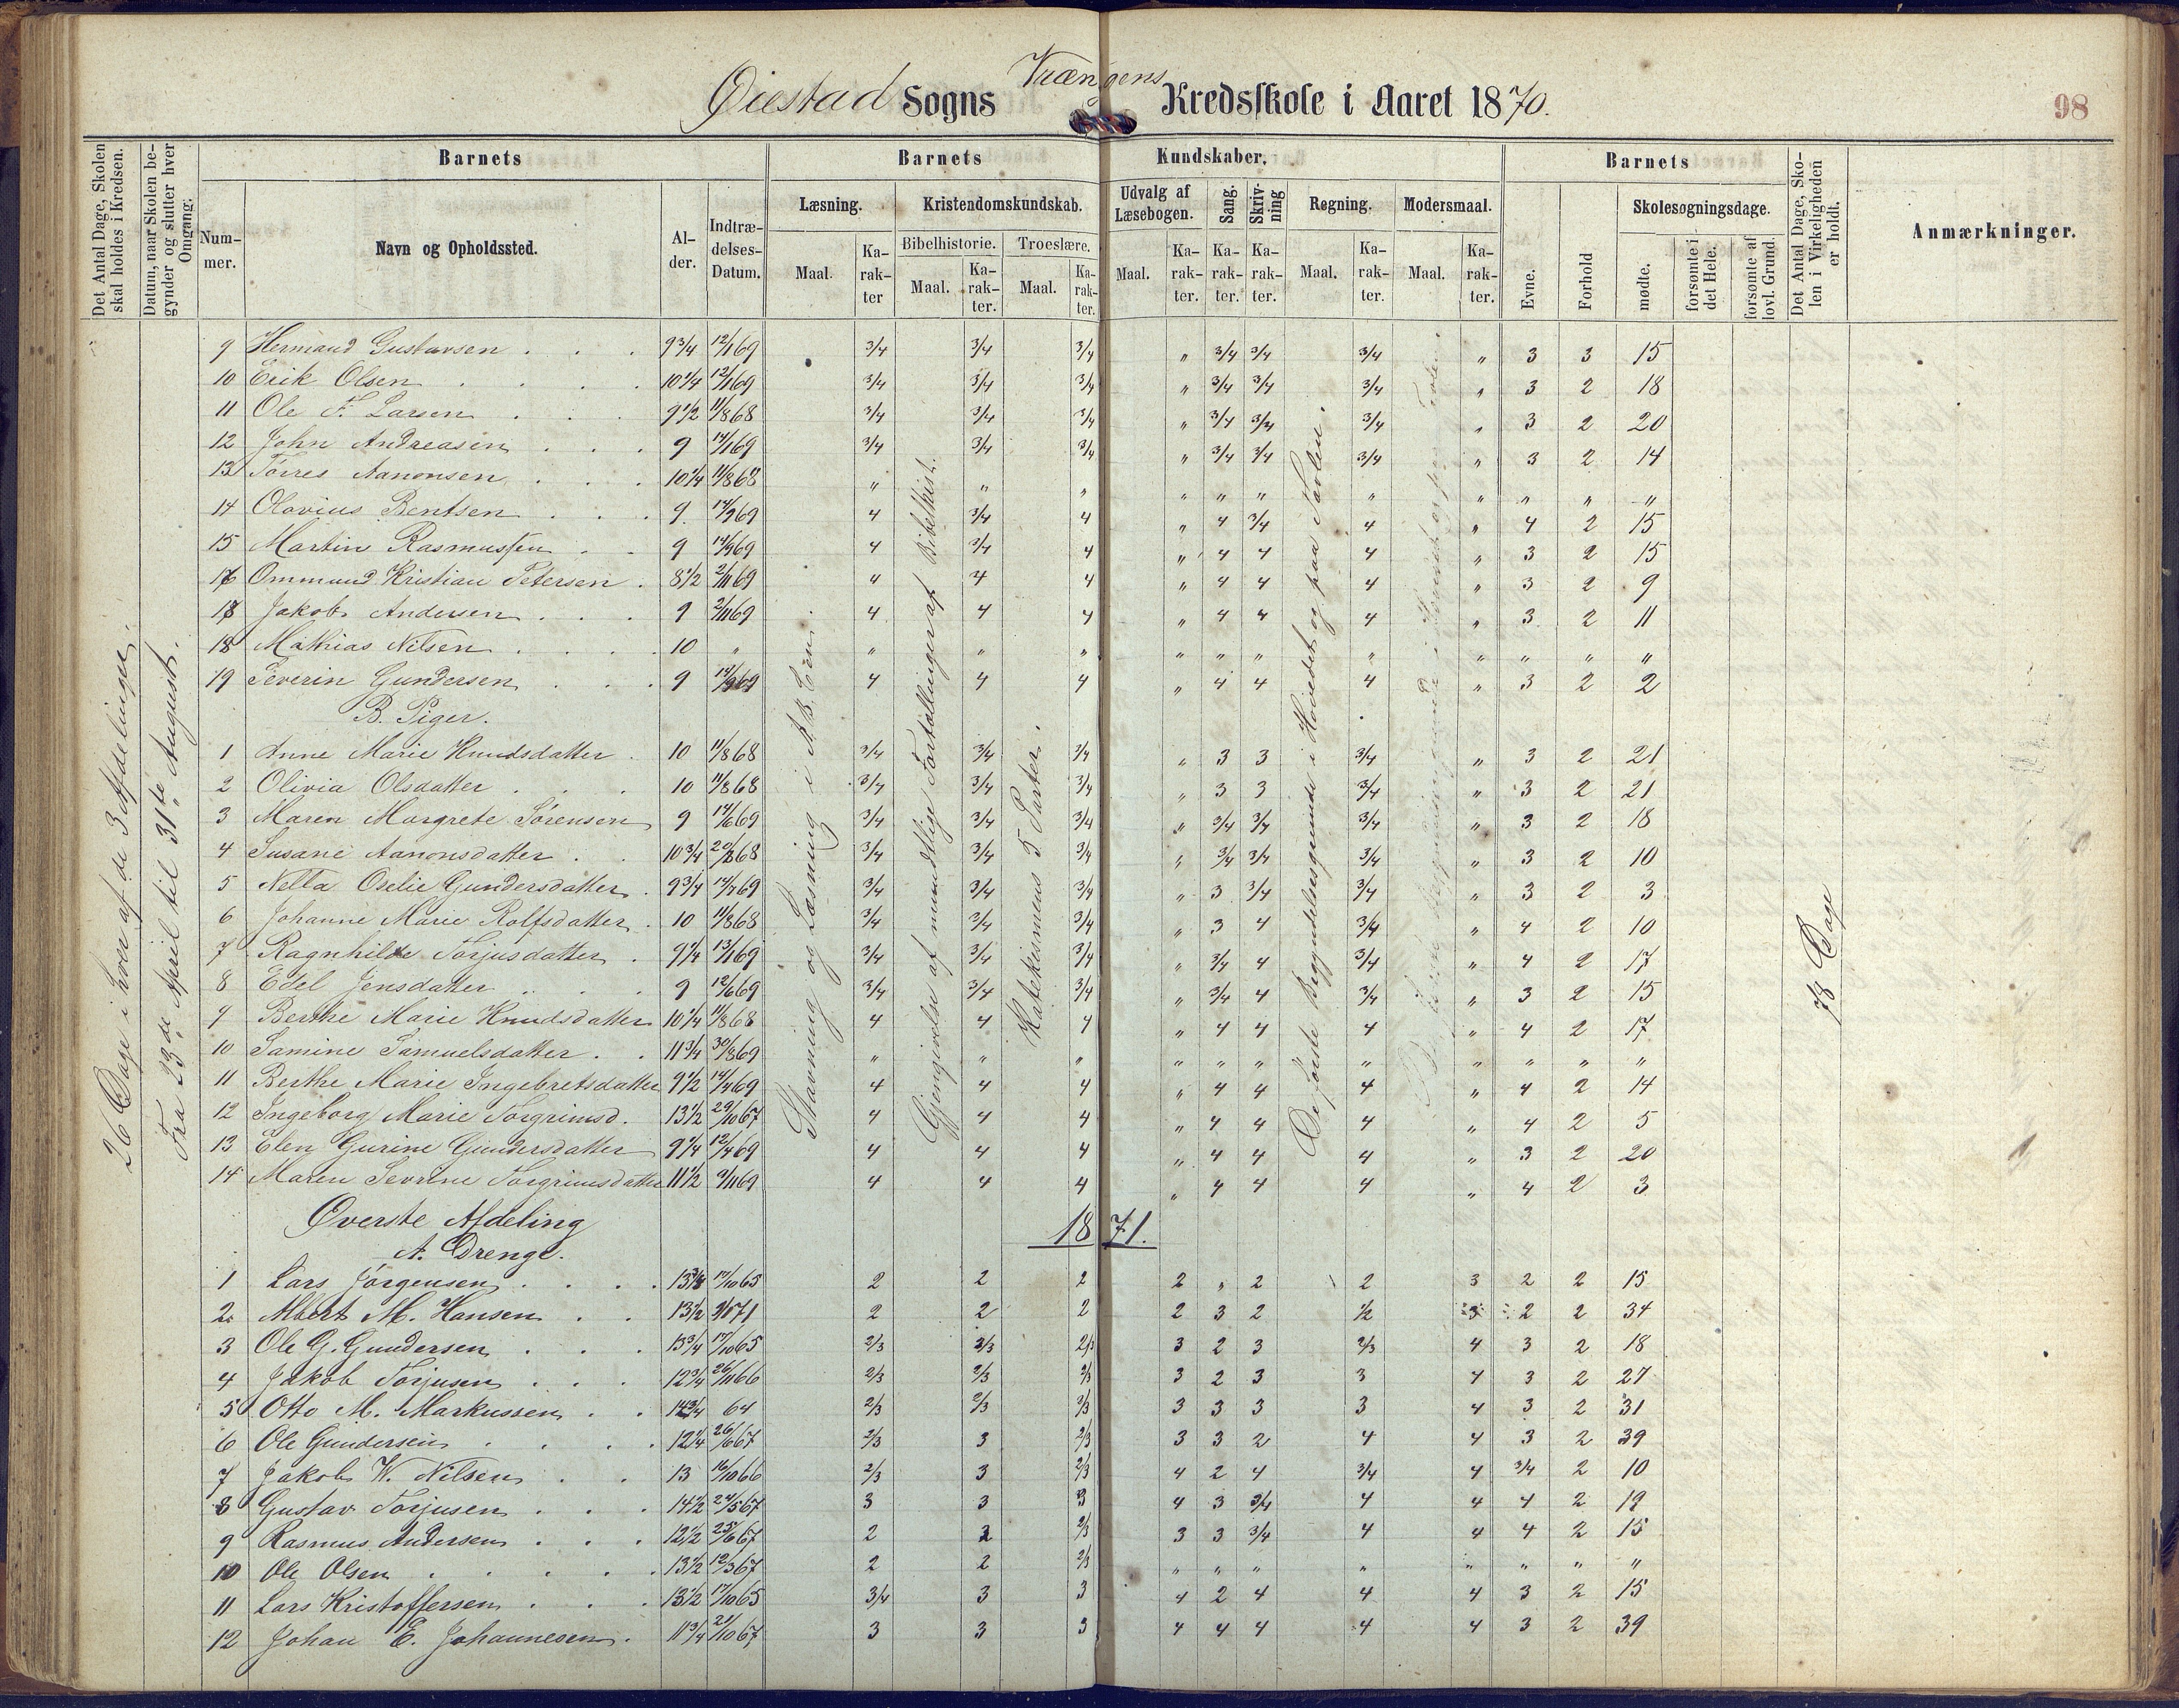 Øiestad Sogns Vrængens Kredsskole i Aaret 1870.
98
Det Antal Dage, Skolen skal holdes i Kredsen.
Datum, naar Skolen begynder og slutter hver Omgang.
Barnets
Nummer.
Navn og Opholdssted.
Alder.
Indtrædelses-Datum.
Barnets Kundskaber.
Læsning.
Maal.
Karakter
Kristendomskundskab.
Bibelhistorie.
Maal.
Karakter.
Troeslære.
Maal.
Karakter.
Udvalg af Læsebogen.
Maal.
Karakter.
Sang.
Karakter.
Skrivning
Karakter.
Regning.
Maal.
Karakter.
Modersmaal.
Maal.
Karakter.
Barnets
Evne.
Forhold
Skolesøgningsdage.
mødte.
forsømte i det Hele.
forsømte af lovl. Grund.
Det Antal Dage, Skolen i Virkeligheden er holdt.
Anmærkninger.
26 Dage i hver af de 3 Afdelinger.
Fra 23de April til 31te August.
Stavning og Læsning i A.B.C'en.
Gjengivelse af mundtlige Fortællinger af Bibelhist.
Katekismens 5 Parter.
De første Begyndelsesgrunde i Hovedet og paa Tavlen.
78 Dage
9 Hermand Gustavsen 9 3/4 12/1 69 3/4 3/4 3/4 " 3/4 3/4 3/4 " 3 3 15
10 Erik Olsen 10 1/4 12/1 69 3/4 3/4 3/4 " 3/4 3/4 3/4 " 3 2 18
11 Ole F. Larsen 9 1/2 11/8 68 3/4 3/4 3/4 " 3/4 3/4 3/4 " 3 2 20
12 John Andreasen 9 14/1 69 3/4 3/4 3/4 " 3/4 3/4 3/4 " 3 2 14
13 Torres Aanonsen 10 1/4 11/8 68 " " " " " " " " " " "
14 Olavius Bentsen 9 14/9 69 4 3/4 4 " 4 3/4 4 " 4 2 15
15 Martin Rasmussen 9 14/9 69 4 3/4 4 " 4 4 4 " 3 2 15
16 Ommund Kristian Petersen 8 1/2 2/11 69 4 4 4 " 4 4 4 " 3 2 9
17 Jakob Andersen 9 2/11 69 4 4 4 " 4 4 4 " 3 2 11
18 Mathias Nilsen 10 " " " " " " " " " " " "
19 Severin Gundersen 9 14/9 69 4 4 4 " 4 4 4 " 3 2 2
B. Piger.
1 Anne Marie Knudsdatter 10 11/8 68 3/4 3/4 3/4 " 3 3 3/4 " 3 2 21
2 Olivia Olsdatter 10 11/8 68 3/4 3/4 3/4 " 3 3 3/4 " 3 2 21
3 Maren Margrete Sørensen 9 14/6 69 3/4 3/4 3/4 " 3/4 3/4 3/4 " 3 2 18
4 Susane Aanonsdatter 10 3/4 20/8 68 3/4 3/4 3/4 " 3/4 3/4 3/4 " 3 2 10
5 Nella Oselie Gundersdatter 9 3/4 14/7 69 3/4 3/4 3/4 " 3 3/4 3/4 " 3 2 3
6 Johanne Marie Rolfsdatter 10 11/8 68 3/4 3/4 3/4 " 3 4 3/4 " 4 2 10
7 Ragnhilde Torjusdatter 9 1/4 13/1 69 3/4 3/4 3/4 " 3/4 4 3/4 " 4 2 17
8 Edel Jensdatter 9 12/6 69 3/4 3/4 3/4 " 3/4 4 3/4 " 3 2 15
9 Berthe Marie Knudsdatter 10 1/4 11/8 68 4 4 4 " 4 4 4 " 4 2 17
10 Samine Samuelsdatter 11 3/4 30/8 69 " " " " " " " " " " "
11 Berthe Marie Ingebretsdatter 9 1/2 14/4 69 4 4 4 " 4 4 4 " 4 2 14
12 Ingeborg Marie Torgrimsd. 13 1/2 29/10 67 4 4 4 " 4 4 4 " 4 2 5
13 Elen Gurine Gundersdatter 9 1/4 12/4 69 4 4 4 " 4 4 4 " 3 2 20
14 Maren Sevrine Torgrimsdatter 11 1/2 9/11 69 4 4 4 " 4 4 4 " 4 2 3
Øverste Afdeling
1871.
A. Drenge.
1 Lars Jørgensen 17/10 65 2 2 2 2 " 2 2 3 2 2 15
2 Albert M. Hansen 13 1/2 71 2 2 2 2 3 2 1/2 3 2 2 34
3 Ole G. Gundersen 13 3/4 17/10 65 2/3 2/3 2/3 3 2 3 2/3 4 3 2 18
4 Jakob Torjusen 12 3/4 26/11 66 2/3 2/3 2/3 3 2 3 3 4 3 2 27
5 Otto M. Markussen 14 3/4 64 2/3 2/3 2/3 3 3 3 3 4 3 2 31
6 Ole Gundersen 12 1/4 26/6 67 2/3 3 2/3 3 3 2 4 4 3 2 39
7 Jakob W. Nilsen 13 16/10 66 2/3 3 2/3 4 2 4 3/4 4 3/4 2 10
8 Gustav Torjusen 14 1/2 24/5 67 3 3 3 4 3 3/4 4 4 4 2 19
9 Rasmus Andersen 12 1/2 25/6 67 2 2 2/3 3 3 3/4 4 4 4 2 15
10 Ole Olsen 13 1/2 12/3 67 2 2 2/3 " " " " " " " "
11 Lars Kristoffersen 13 1/2 17/10 65 3/4 3 3 4 2 4 4 4 3 2 15
12 Johan E. Johannesen 11 3/4 21/10 67 3 3 3 4 4 4 4 4 3 2 39